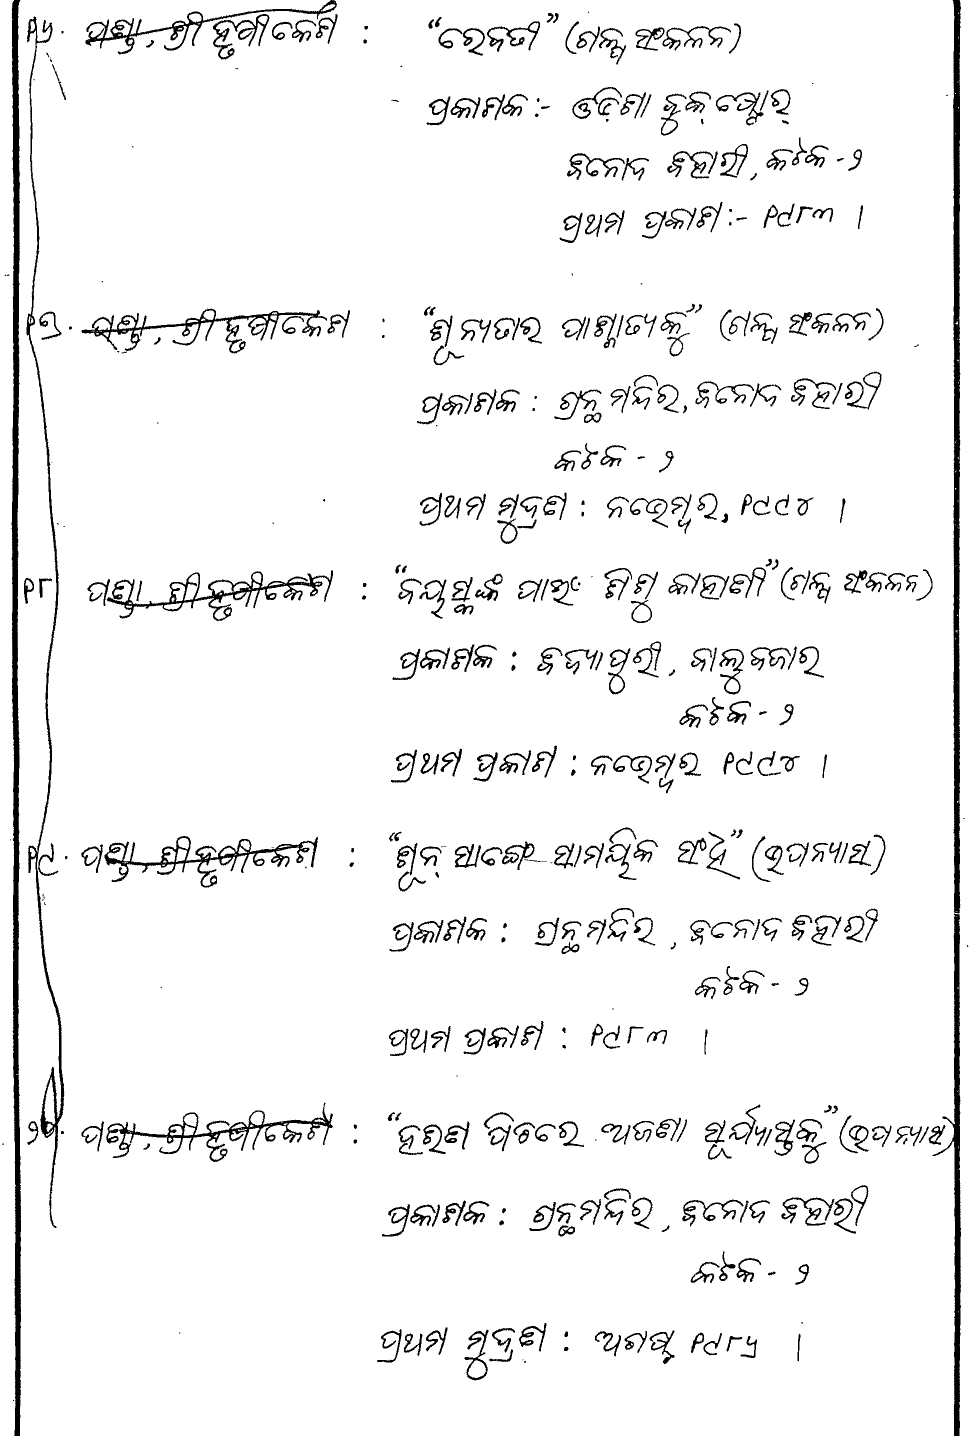 ୧୬. ପଣ୍ଡା, ଶ୍ରୀ ହୃଷୀକେଶ : “ରେବତୀ” (ଗଳ୍ପ ସଂକଳନ)
ପ୍ରକାଶକ :- ଓଡ଼ିଶା ବୁକ୍ ଷ୍ଟୋର୍
ବିନୋଦ ବିହାରୀ, କଟକ - ୨
ପ୍ରଥମ ପ୍ରକାଶ :- ୧୯୮୩ ।
୧୭. ପଣ୍ଡା, ଶ୍ରୀ ହୃଷୀକେଶ : “ଶୂନ୍ୟତାର ପାଶ୍ଚାତ୍ୟକୁ” (ଗଳ୍ପ ସଂକଳନ)
ପ୍ରକାଶକ : ଗ୍ରନ୍ଥ ମନ୍ଦିର, ବିନୋଦ ବିହାରୀ
କଟକ - ୨
ପ୍ରଥମ ମୁଦ୍ରଣ : ନଭେମ୍ବର, ୧୯୯୪ ।
୧୮ ପଣ୍ଡା, ଶ୍ରୀ ହୃଷୀକେଶ : “ବୟସ୍କଙ୍କ ପାଇଁ ଶିଶୁ କାହାଣୀ” (ଗଳ୍ପ ସଂକଳନ)
ପ୍ରକାଶକ : ବିଦ୍ୟାପୁରୀ, ବାଲୁବଜାର
କଟକ - ୨
ପ୍ରଥମ ପ୍ରକାଶ : ନଭେମ୍ବର ୧୯୯୪ ।
୧୯. ପଣ୍ଡା, ଶ୍ରୀ ହୃଷୀକେଶ : “ଶୂନ୍ ସାଙ୍ଗେ ସାମୟିକ ସଂହି” (ଉପନ୍ୟାସ)
ପ୍ରକାଶକ : ଗ୍ରନ୍ଥ ମନ୍ଦିର, ବିନୋଦ ବିହାରୀ
କଟକ - ୨
ପ୍ରଥମ ପ୍ରକାଶ : ୧୯୮୩ ।
୨୦. ପଣ୍ଡା, ଶ୍ରୀ ହୃଷୀକେଶ : “ହରିଣ ପିଠରେ ଅଜଣା ସୂର୍ଯ୍ୟାସ୍ତକୁ” (ଉପନ୍ୟାସ)
ପ୍ରକାଶକ : ଗ୍ରନ୍ଥମନ୍ଦିର, ବିନୋଦ ବିହାରୀ
କଟକ - ୨
ପ୍ରଥମ ମୁଦ୍ରଣ : ଅଗଷ୍ଟ ୧୯୮୫ ।